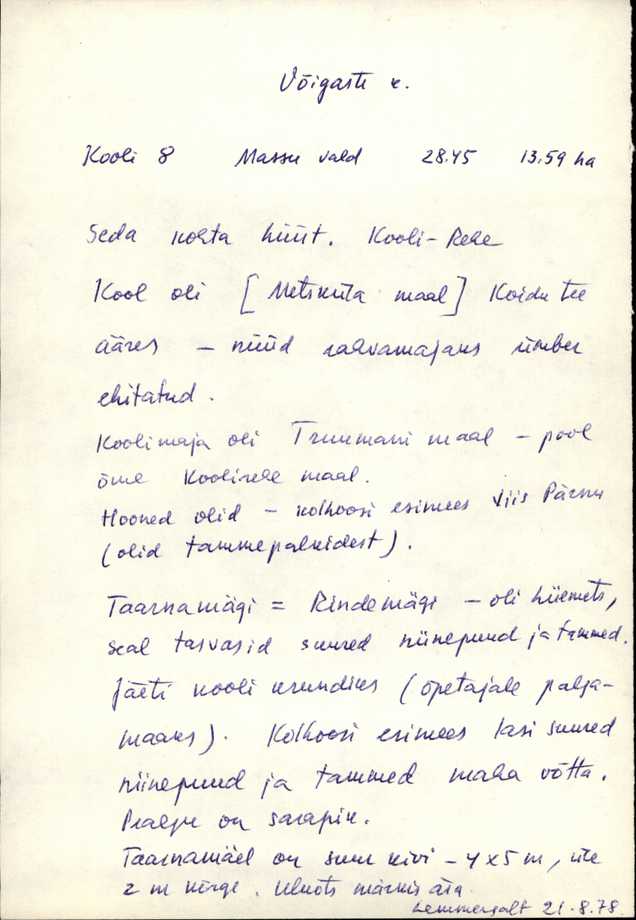 Võigaste k.
Kooli 8 Massu vald 28.45 13.59 ha
Seda kohta hüüt. Kooli-Rehe
Kool oli [Metsküla maal] Koidu tee
ääres – nüüd rahvamajaks ümber
ehitatud.
Koolimaja oli Truumani maal – pool
õue Koolirehe maal.
Hooned olid – kolhoosi esimees viis Pärnu
(olid tammepalkidest).
Taarnamägi = Rindemägi – oli hiiemets,
seal kasvasid suured niinepuud ja tammed.
Jäeti kooli krundiks (õpetajale palga-
maaks). Kolhoosi esimees lasi suured
niinepuud ja tammed maha võtta.
Praegu on sarapik.
Taarnamäel on suur kivi – 4x5 m, üle
2 m kõrge. märkis ära.
Lemmergalt 21.8.78